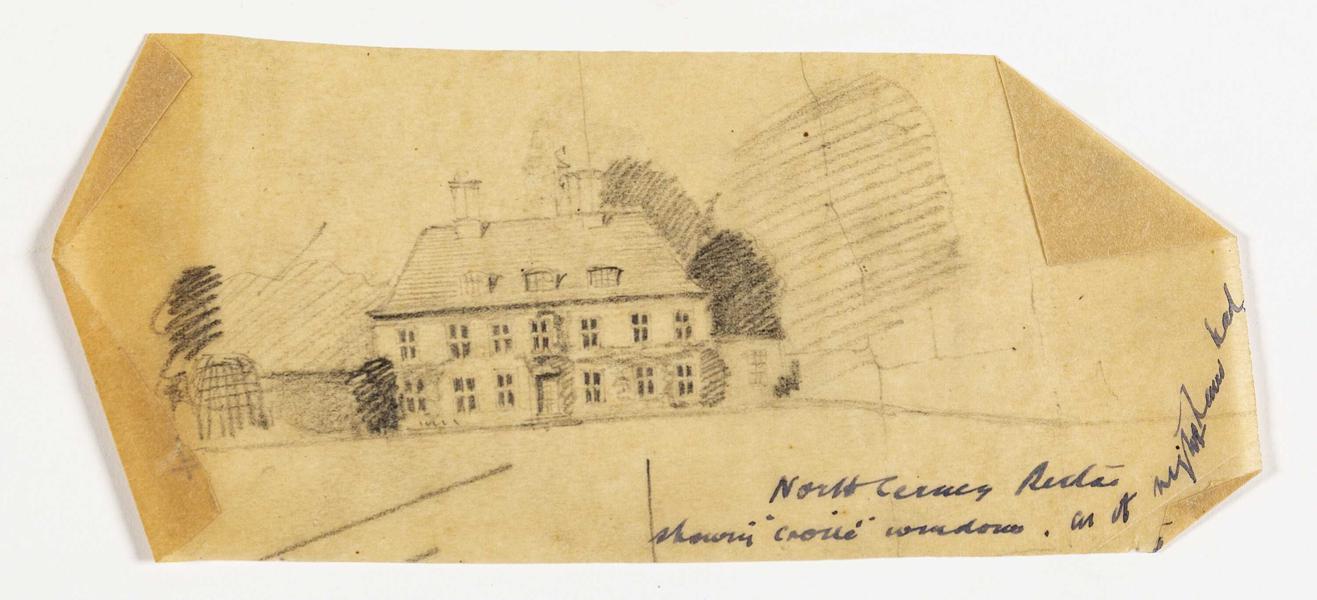 North Cerney Rectory
showing "cross" windows. as it
might have had